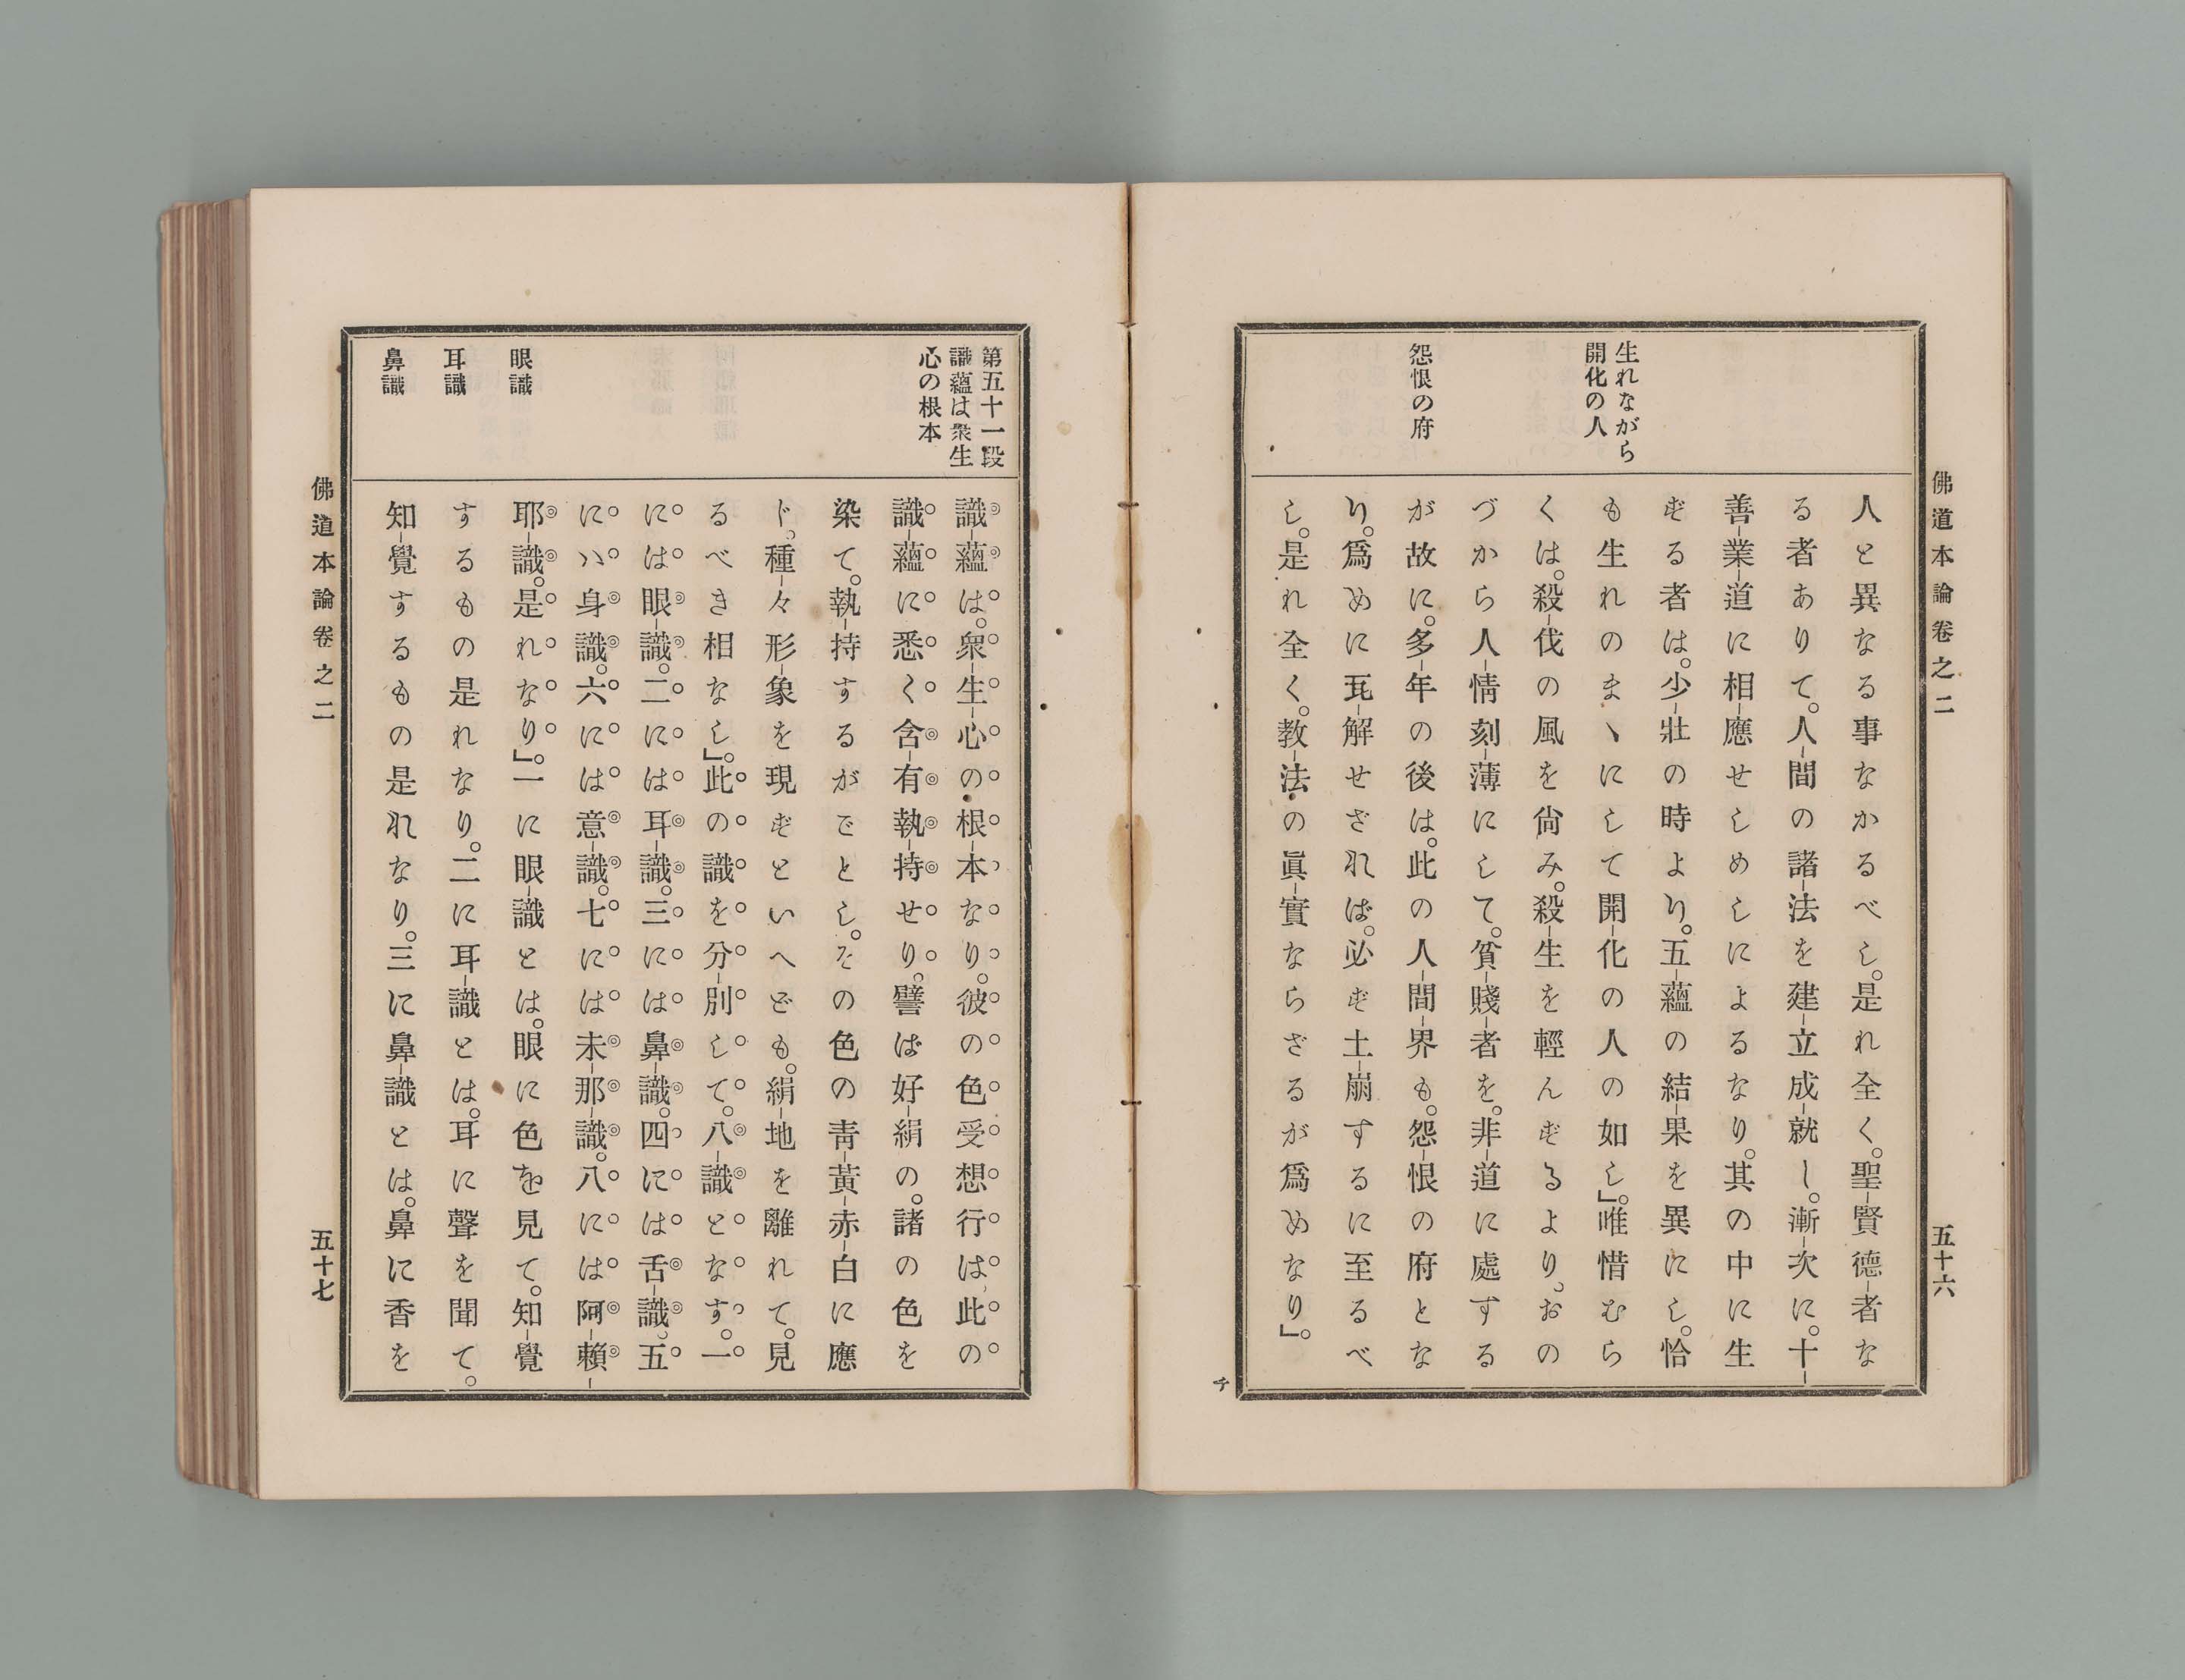 佛道本論卷之二
五十六
生れながら
開化の人
怨恨の府
人と異なる事なかるべし。是れ全く。聖-賢德-者な
る者ありて。人-間の諸-法を建-立成-就し。漸-次に。十-
善-業-道に相-應せしめしによるなり。其の中に生
ずる者は。少-壯の時より。五-蘊の結-果を異にし。恰
も生れのまゝにして開-化の人の如し』。唯惜むら
くは。殺-伐の風を尙み。殺-生を輕んずるより。おの
づから人-情刻-薄にして。貧-賤-者を。非-道に處する
が故に。多-年の後は。此の人-間-界も。怨-恨の府とな
り。爲めに瓦-解せざれば。必ず土-崩するに至るべ
し。是れ全く。敎-法の眞-實ならざるが爲めなり』。
チ
第五十一段
識蘊は衆生
心の根本
眼識
耳識
鼻識
識-蘊は。衆-生-心の根-本なり。彼の色受想行は、此の
識-蘊に悉く含-有執-持せり。譬ば好-絹の。諸の色を
染て。執-持するがごとし。その色の靑-黃-赤-白に應
じ。種-々形-象を現ずといへども。絹-地を離れて。見
るべき相なし』。此の識を分-別して。八-識となす。一
には眼-識。二には耳-識。三には鼻-識。四には舌-識。五
には身識。六には意-識。七には未-那-識。八には阿-賴-
耶-識。是れなり』。一に眼-識とは。眼に色を見て。知-覺
するもの是れなり。二に耳-識とは。耳に聲を聞て。
知-覺するもの是れなり。三に鼻-識とは。鼻に香を
佛道本論卷之二
五十七